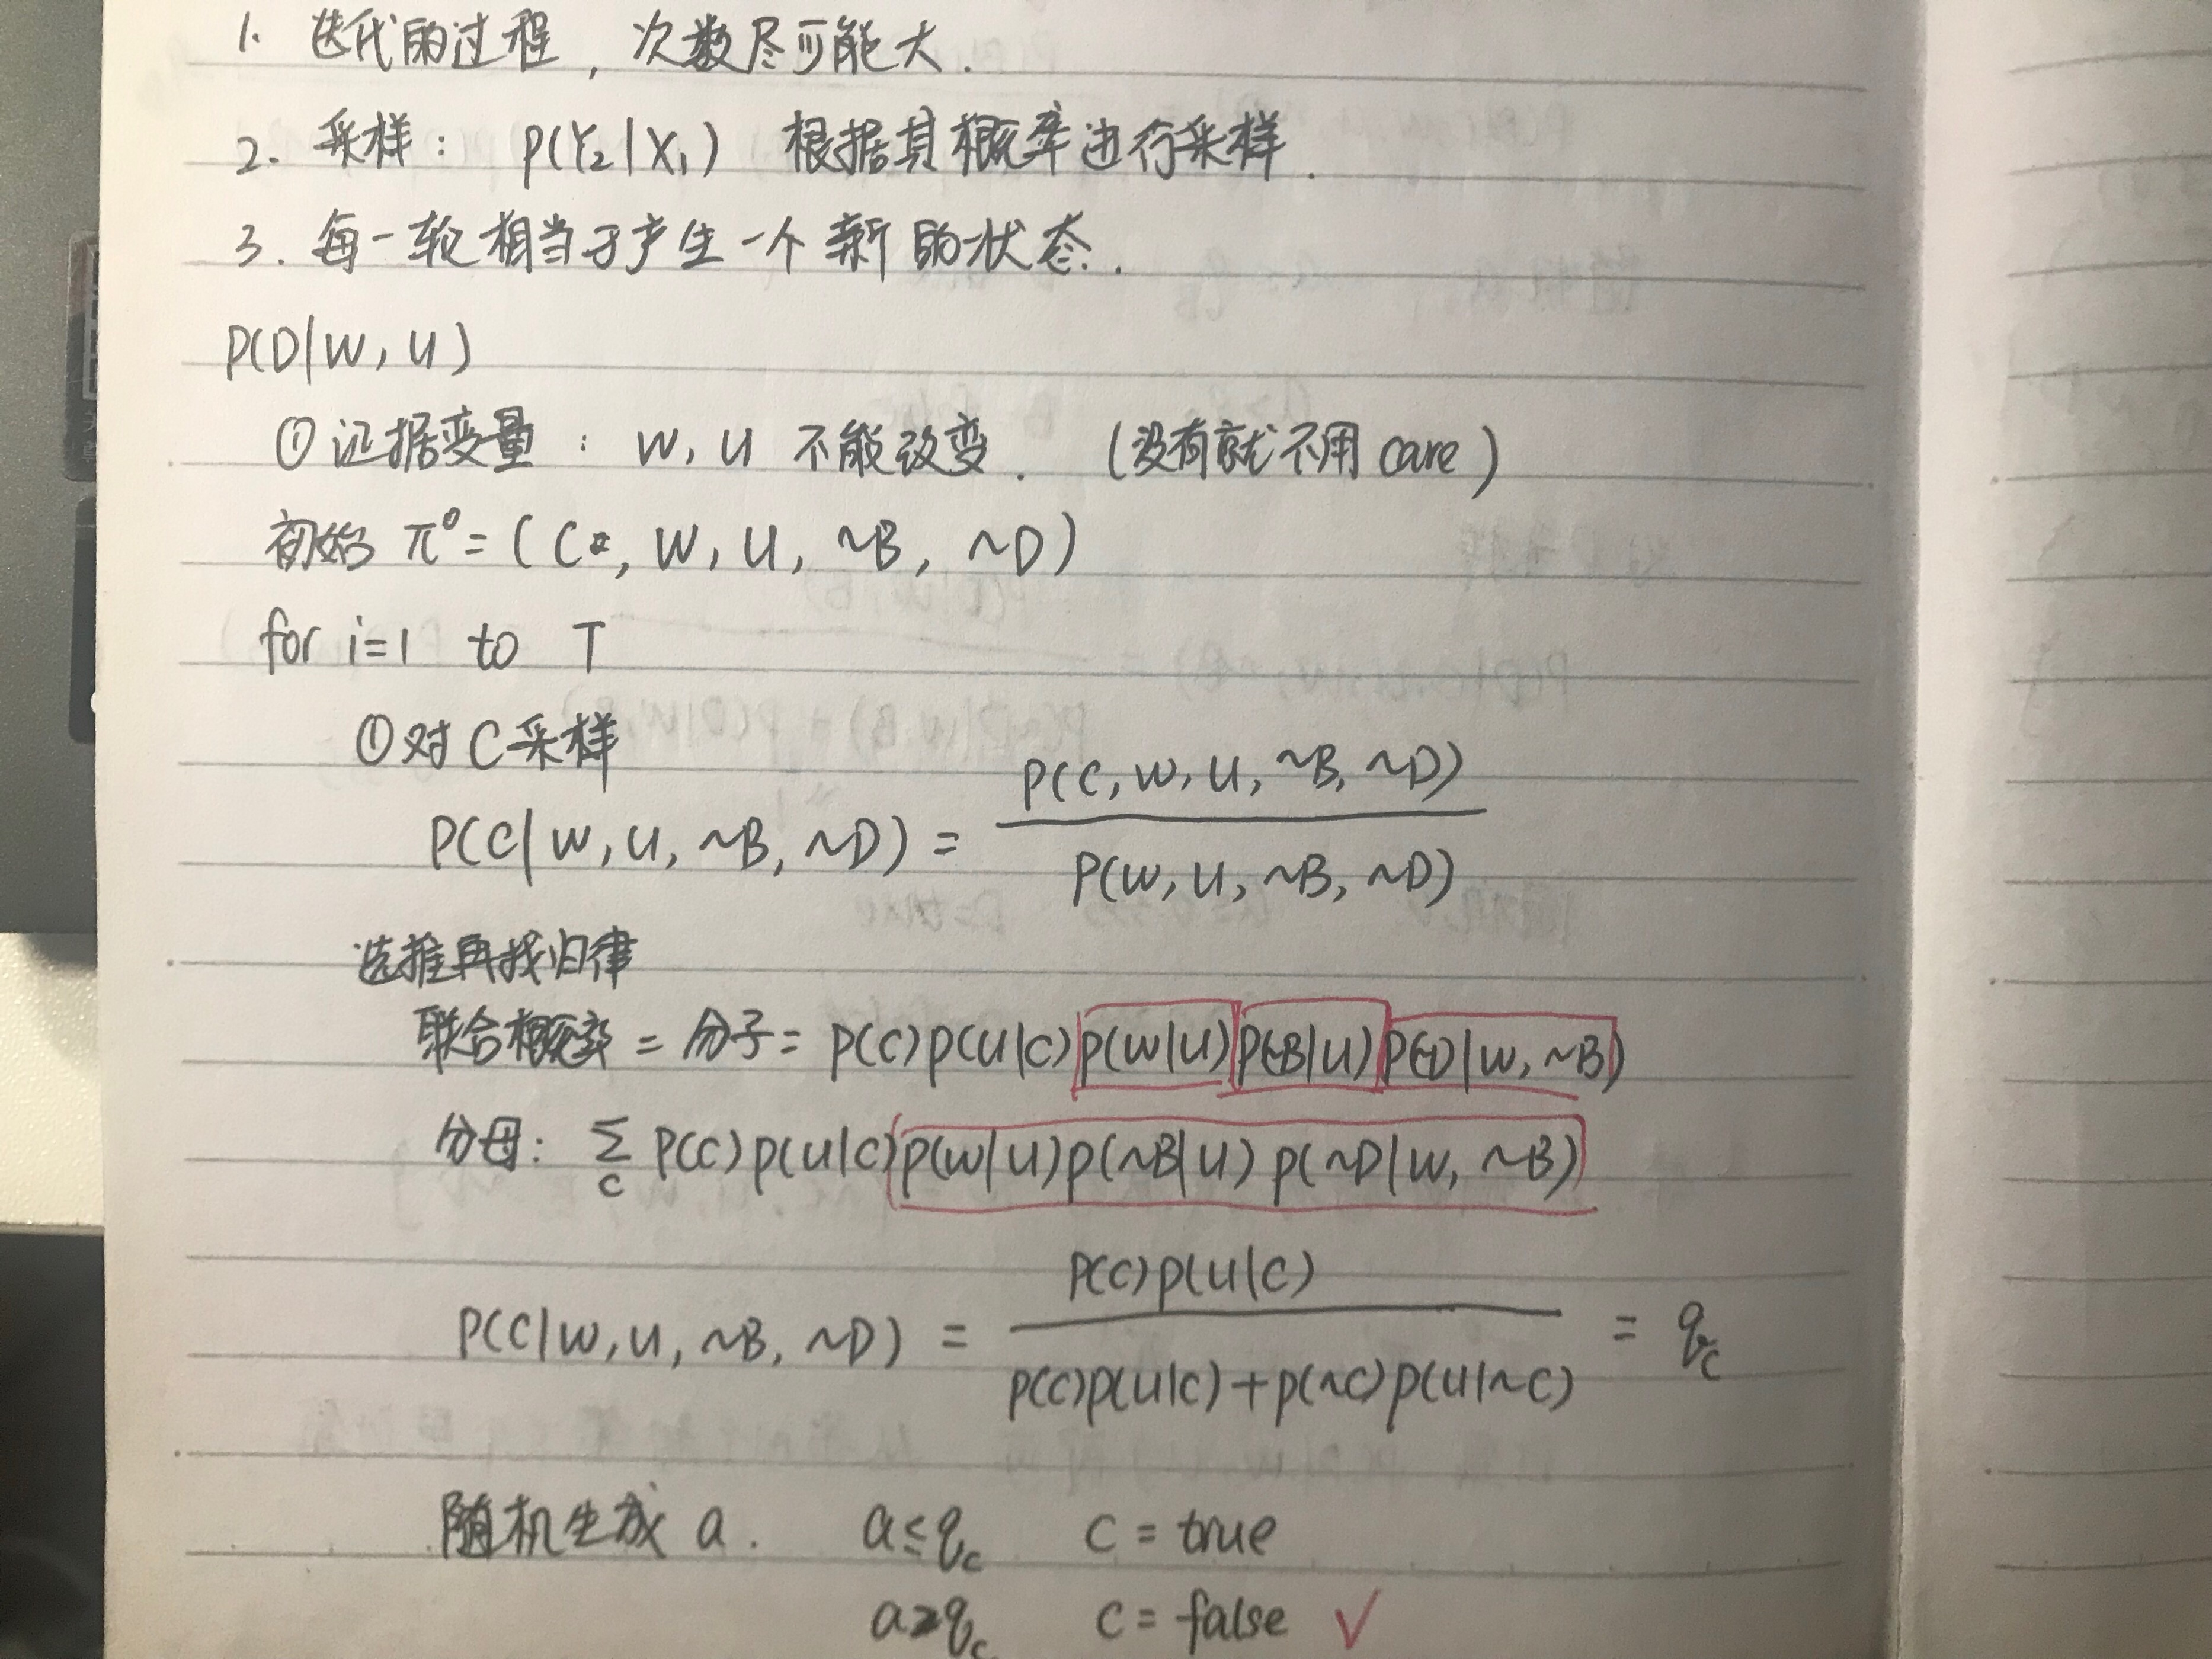 1. 迭代的过程，次数尽可能大.
2. 采样： P(Y₂|X₁) 根据其概率进行采样.
3. 每一轮相当于产生一个新的状态.
P(D|W, U)
① 证据变量： W, U 不能改变. (没有就不用 care)
初始 π⁰ = (C, W, U, ~B, ~D)
for i=1 to T
① 对 C 采样
P(C|W, U, ~B, ~D) = P(C, W, U, ~B, ~D) / P(W, U, ~B, ~D)
先推再找归律
联合概率 = 分子 = P(C)P(U|C)P(W|U)P(~B|U)P(~D|W, ~B)
分母： Σ_C P(C)P(U|C)P(W|U)P(~B|U)P(~D|W, ~B)
P(C|W, U, ~B, ~D) = P(C)P(U|C) / P(C)P(U|C)+P(~C)P(U|~C) = q_C
随机生成 a. a≤q_C C = true
a>q_C C = false ✓